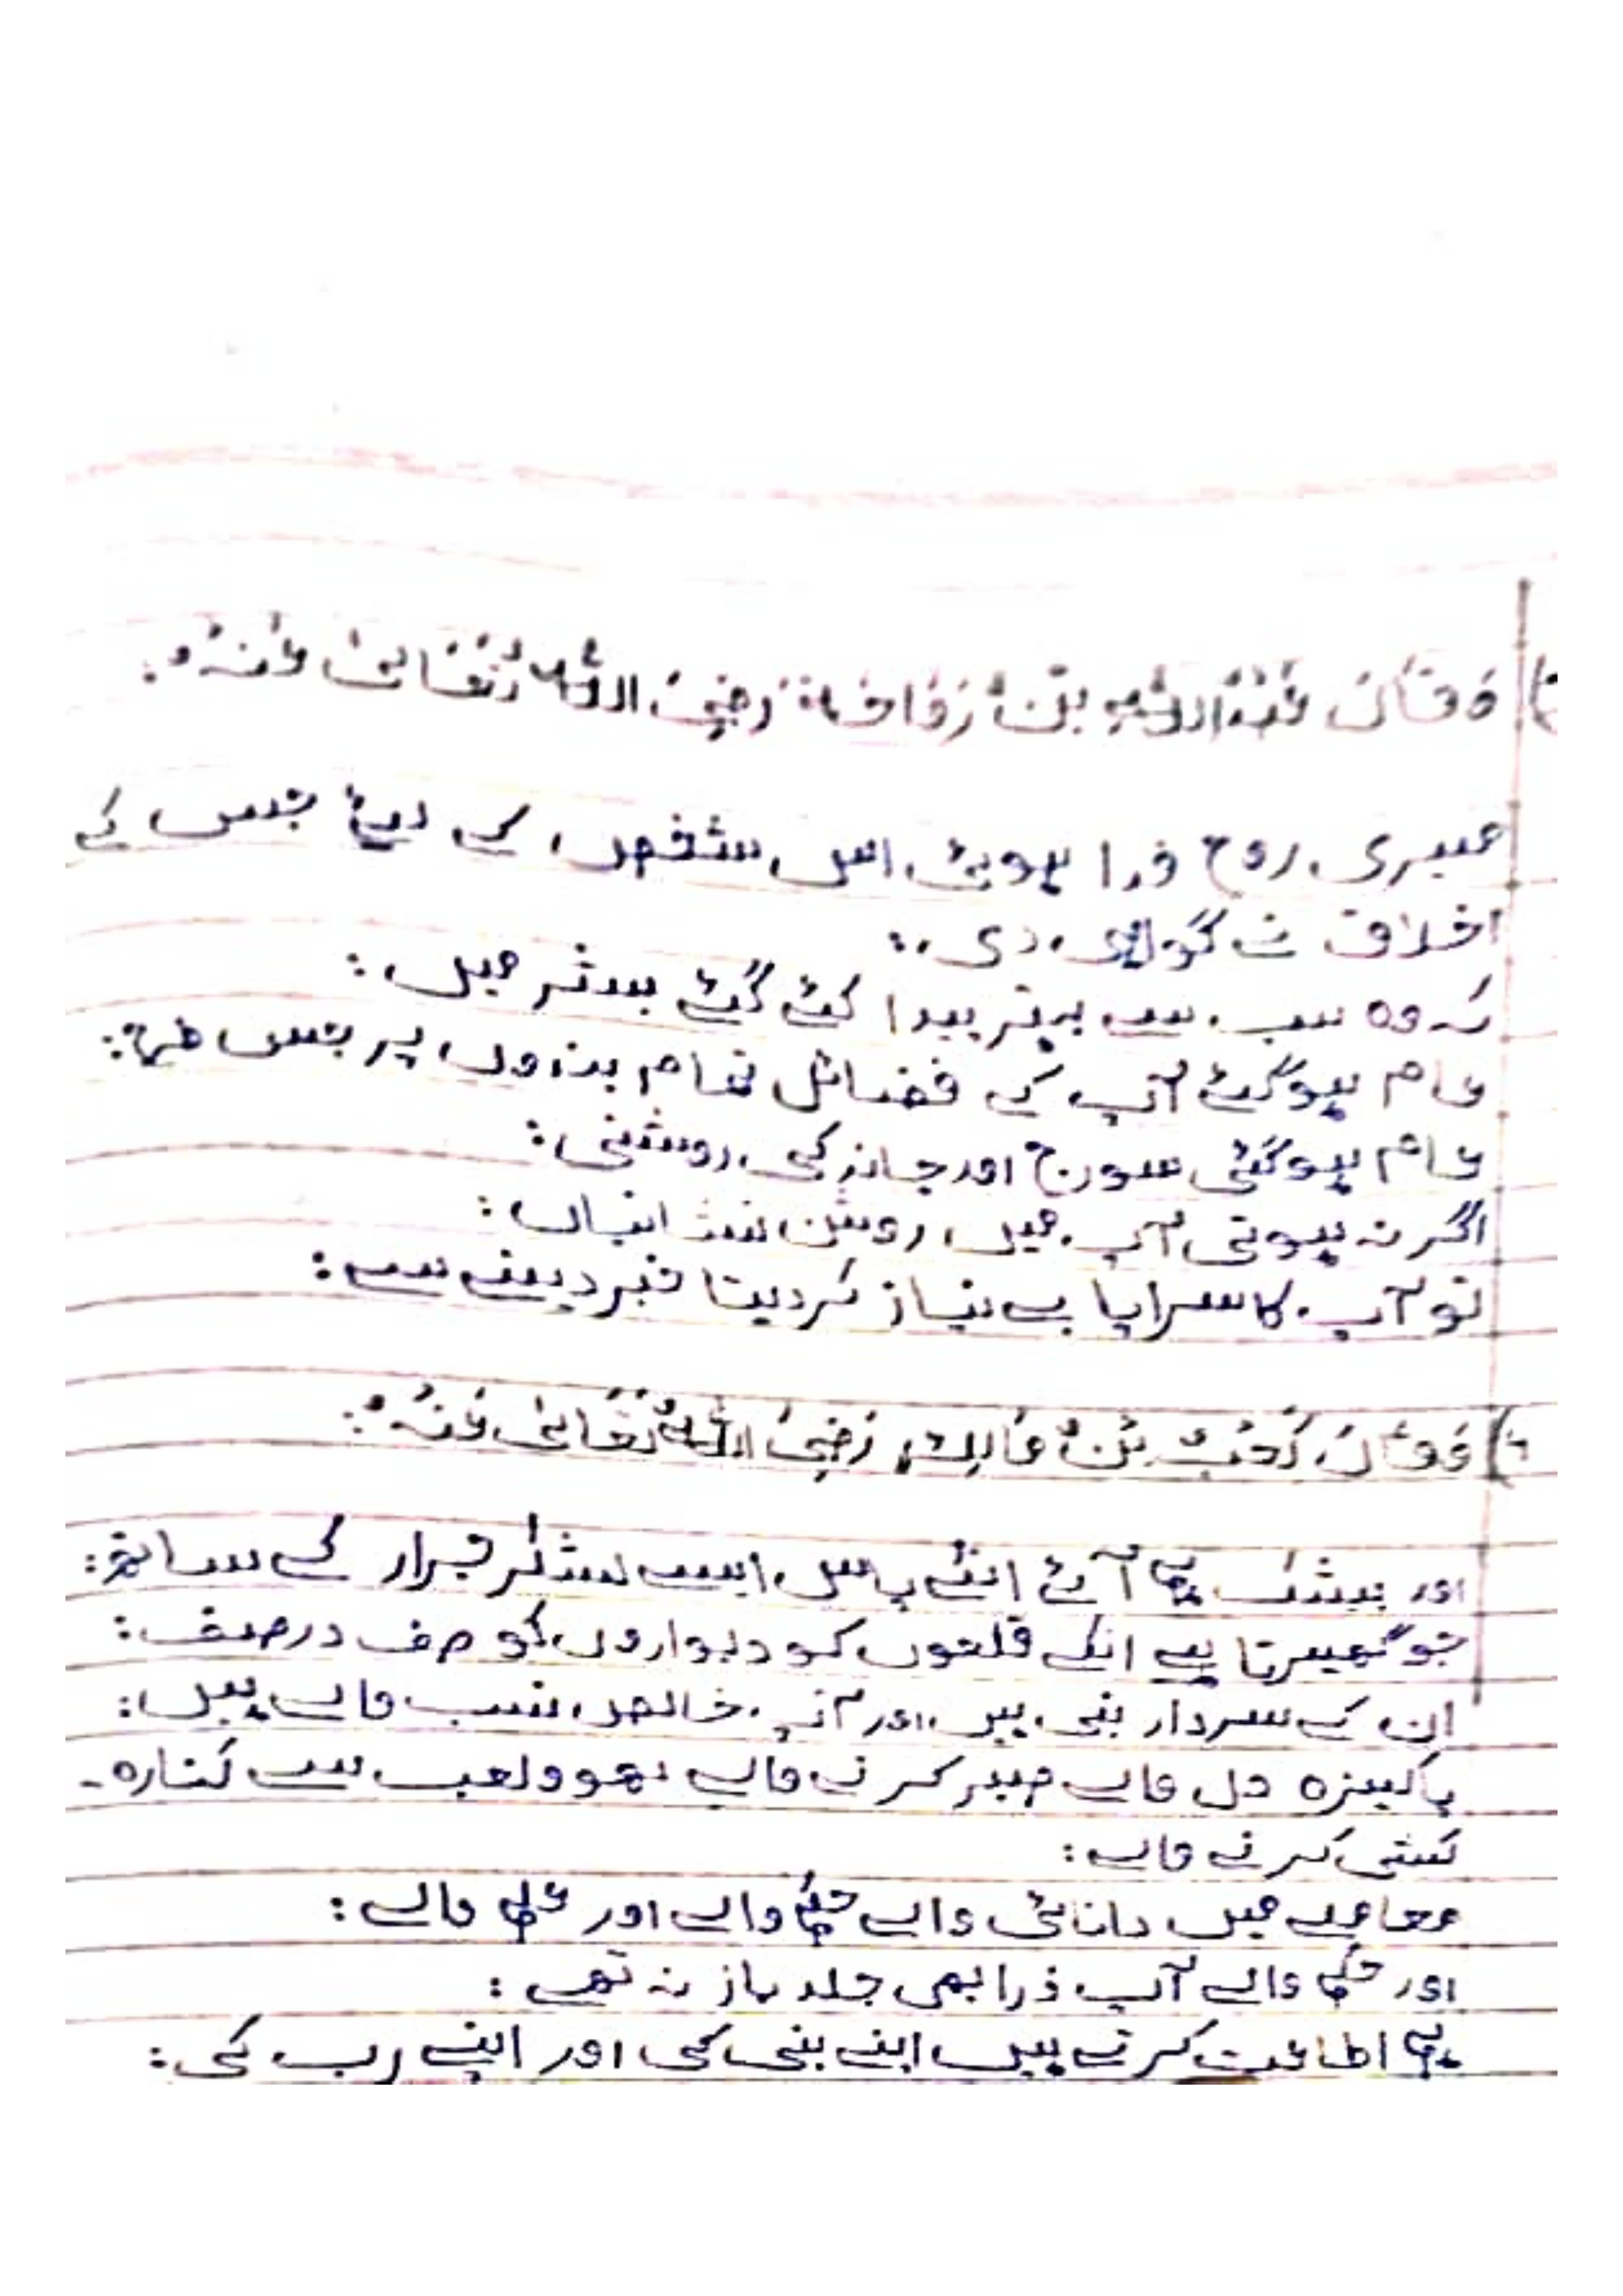 وَقَالَ عَبْدُ اللّٰہِ بْنُ رَوَاحَةَ رَضِیَ اللّٰہُ تَعَالیٰ عَنْہُ:
میری روح فدا ہوئی اس شخص کے لیۓ جس کے
اخلاق نے گواہی دی:
کہ وہ سب سے بہتر پیدا کئے گئے بشر میں:
عام ہوگئے آپ کے فضائل تمام بندوں پر جس طرح:
عام ہوگئی سورج اور چاند کی روشنی:
اگر نہ ہوتی آپ میں روشن نشانیاں:
تو آپ کا سراپا بے نیاز کردیتا خبر دینے سے:
وَقَالَ کَعْبُ بْنُ مَالِكٍ رَضِیَ اللّٰہُ تَعَالیٰ عَنْہُ:
اور بیشک ہم آئے انکے پاس ایسے لشکر جرار کے ساتھ:
جو گھیرتا ہے انکے قلعوں کو دیواروں کو صف در صف:
ان کے سردار نبی ہیں اور آپ خالص نسب والے ہیں:
پاکیزہ دل والے صبر کرنے والے لھو ولعب سے کنارہ-
کشی کرنے والے:
معاملے میں دانائی والے حکم والے اور علم والے:
اور حلم والے آپ ذرا بھی جلد باز نہ تھے:
ہم اطاعت کرتے ہیں اپنے نبی کی اور اپنے رب کی: